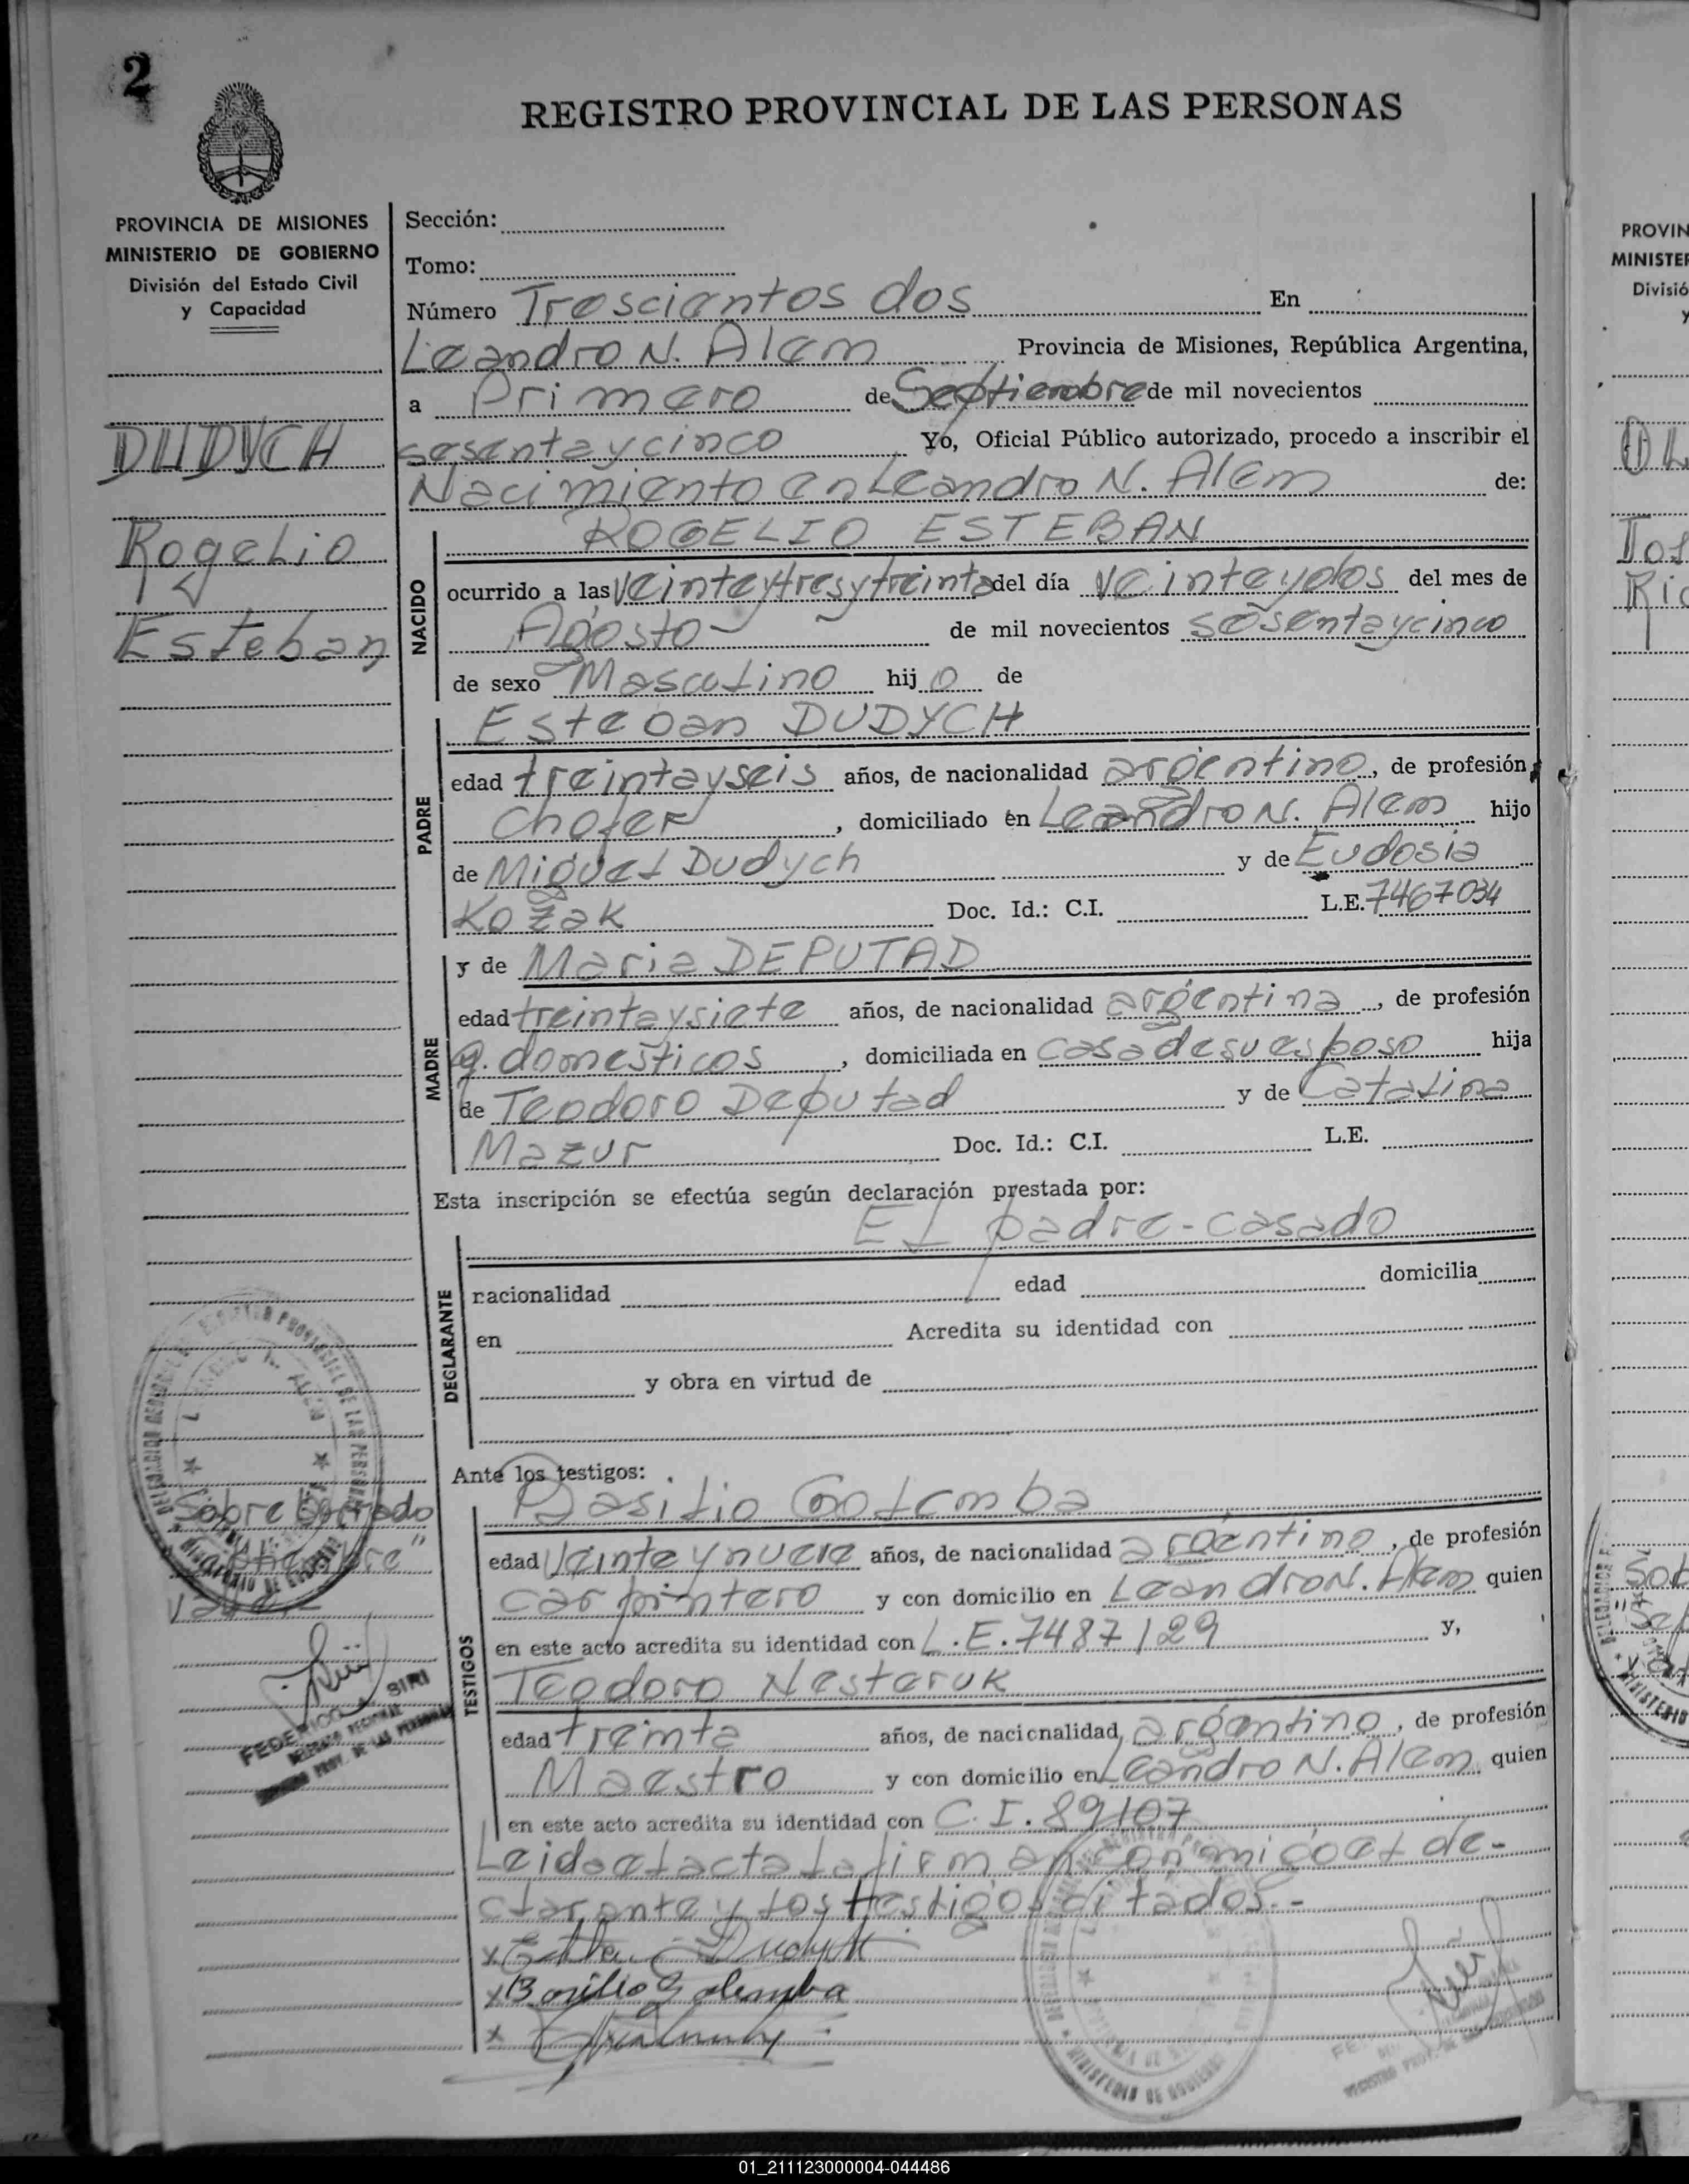 2
REGISTRO PROVINCIAL DE LAS PERSONAS
PROVINCIA DE MISIONES
MINISTERIO DE GOBIERNO
División del Estado Civil
y Capacidad
DUDYCH
Rogelio
Esteban
Sección:
Tomo:
Número Trescientos dos En
Leandro N. Alem Provincia de Misiones, República Argentina,
a Primero de Septiembre de mil novecientos
sesentaycinco Yo, Oficial Público autorizado, procedo a inscribir el
Nacimiento en Leandro N. Alem de:
ROGELIO ESTEBAN
NACIDO
ocurrido a las veinteytresytreinta del día veinteydos del mes de
Agosto de mil novecientos sesentaycinco
de sexo Masculino hijo de
Esteban DUDYCH
PADRE
edad treintayseis años, de nacionalidad argentino, de profesión
Chofer, domiciliado en Leandro N. Alem hijo
de Miguel Dudych y de Eudosia
Kozak Doc. Id.: C.I. L.E. 7467034
MADRE
y de Maria DEPUTAD
edad treintaysiete años, de nacionalidad argentina, de profesión
q. domésticos, domiciliada en casa de su esposo hija
de Teodoro Deputad y de Catalina
Mazur Doc. Id.: C.I. L.E.
Esta inscripción se efectúa según declaración prestada por:
El padre-casado
DECLARANTE
nacionalidad edad domicilia
en Acredita su identidad con
y obra en virtud de
Ante los testigos:
Basilio Golemba
TESTIGOS
edad Veinteynueve años, de nacionalidad argentino, de profesión
carpintero y con domicilio en Leandro N. Alem quien
en este acto acredita su identidad con L.E. 7487129 y,
Teodoro Nesteruk
edad treinta años, de nacionalidad argentino, de profesión
Maestro y con domicilio en Leandro N. Alem quien
en este acto acredita su identidad con C.I. 89107
Leida el acta la firman conmigo el de-
clarante y los testigos citados.-
x Esteban Dudych
x Basilio Golemba
x
Sobre borrado
Vale.-
FEDERICO A. SIRI
DELEGADO REGIONAL
REGISTRO PROV. DE LAS PERSONAS
MINISTERIO DE GOBIERNO
PROVIN
MINISTER
Divisió
y
01_211123000004-044486